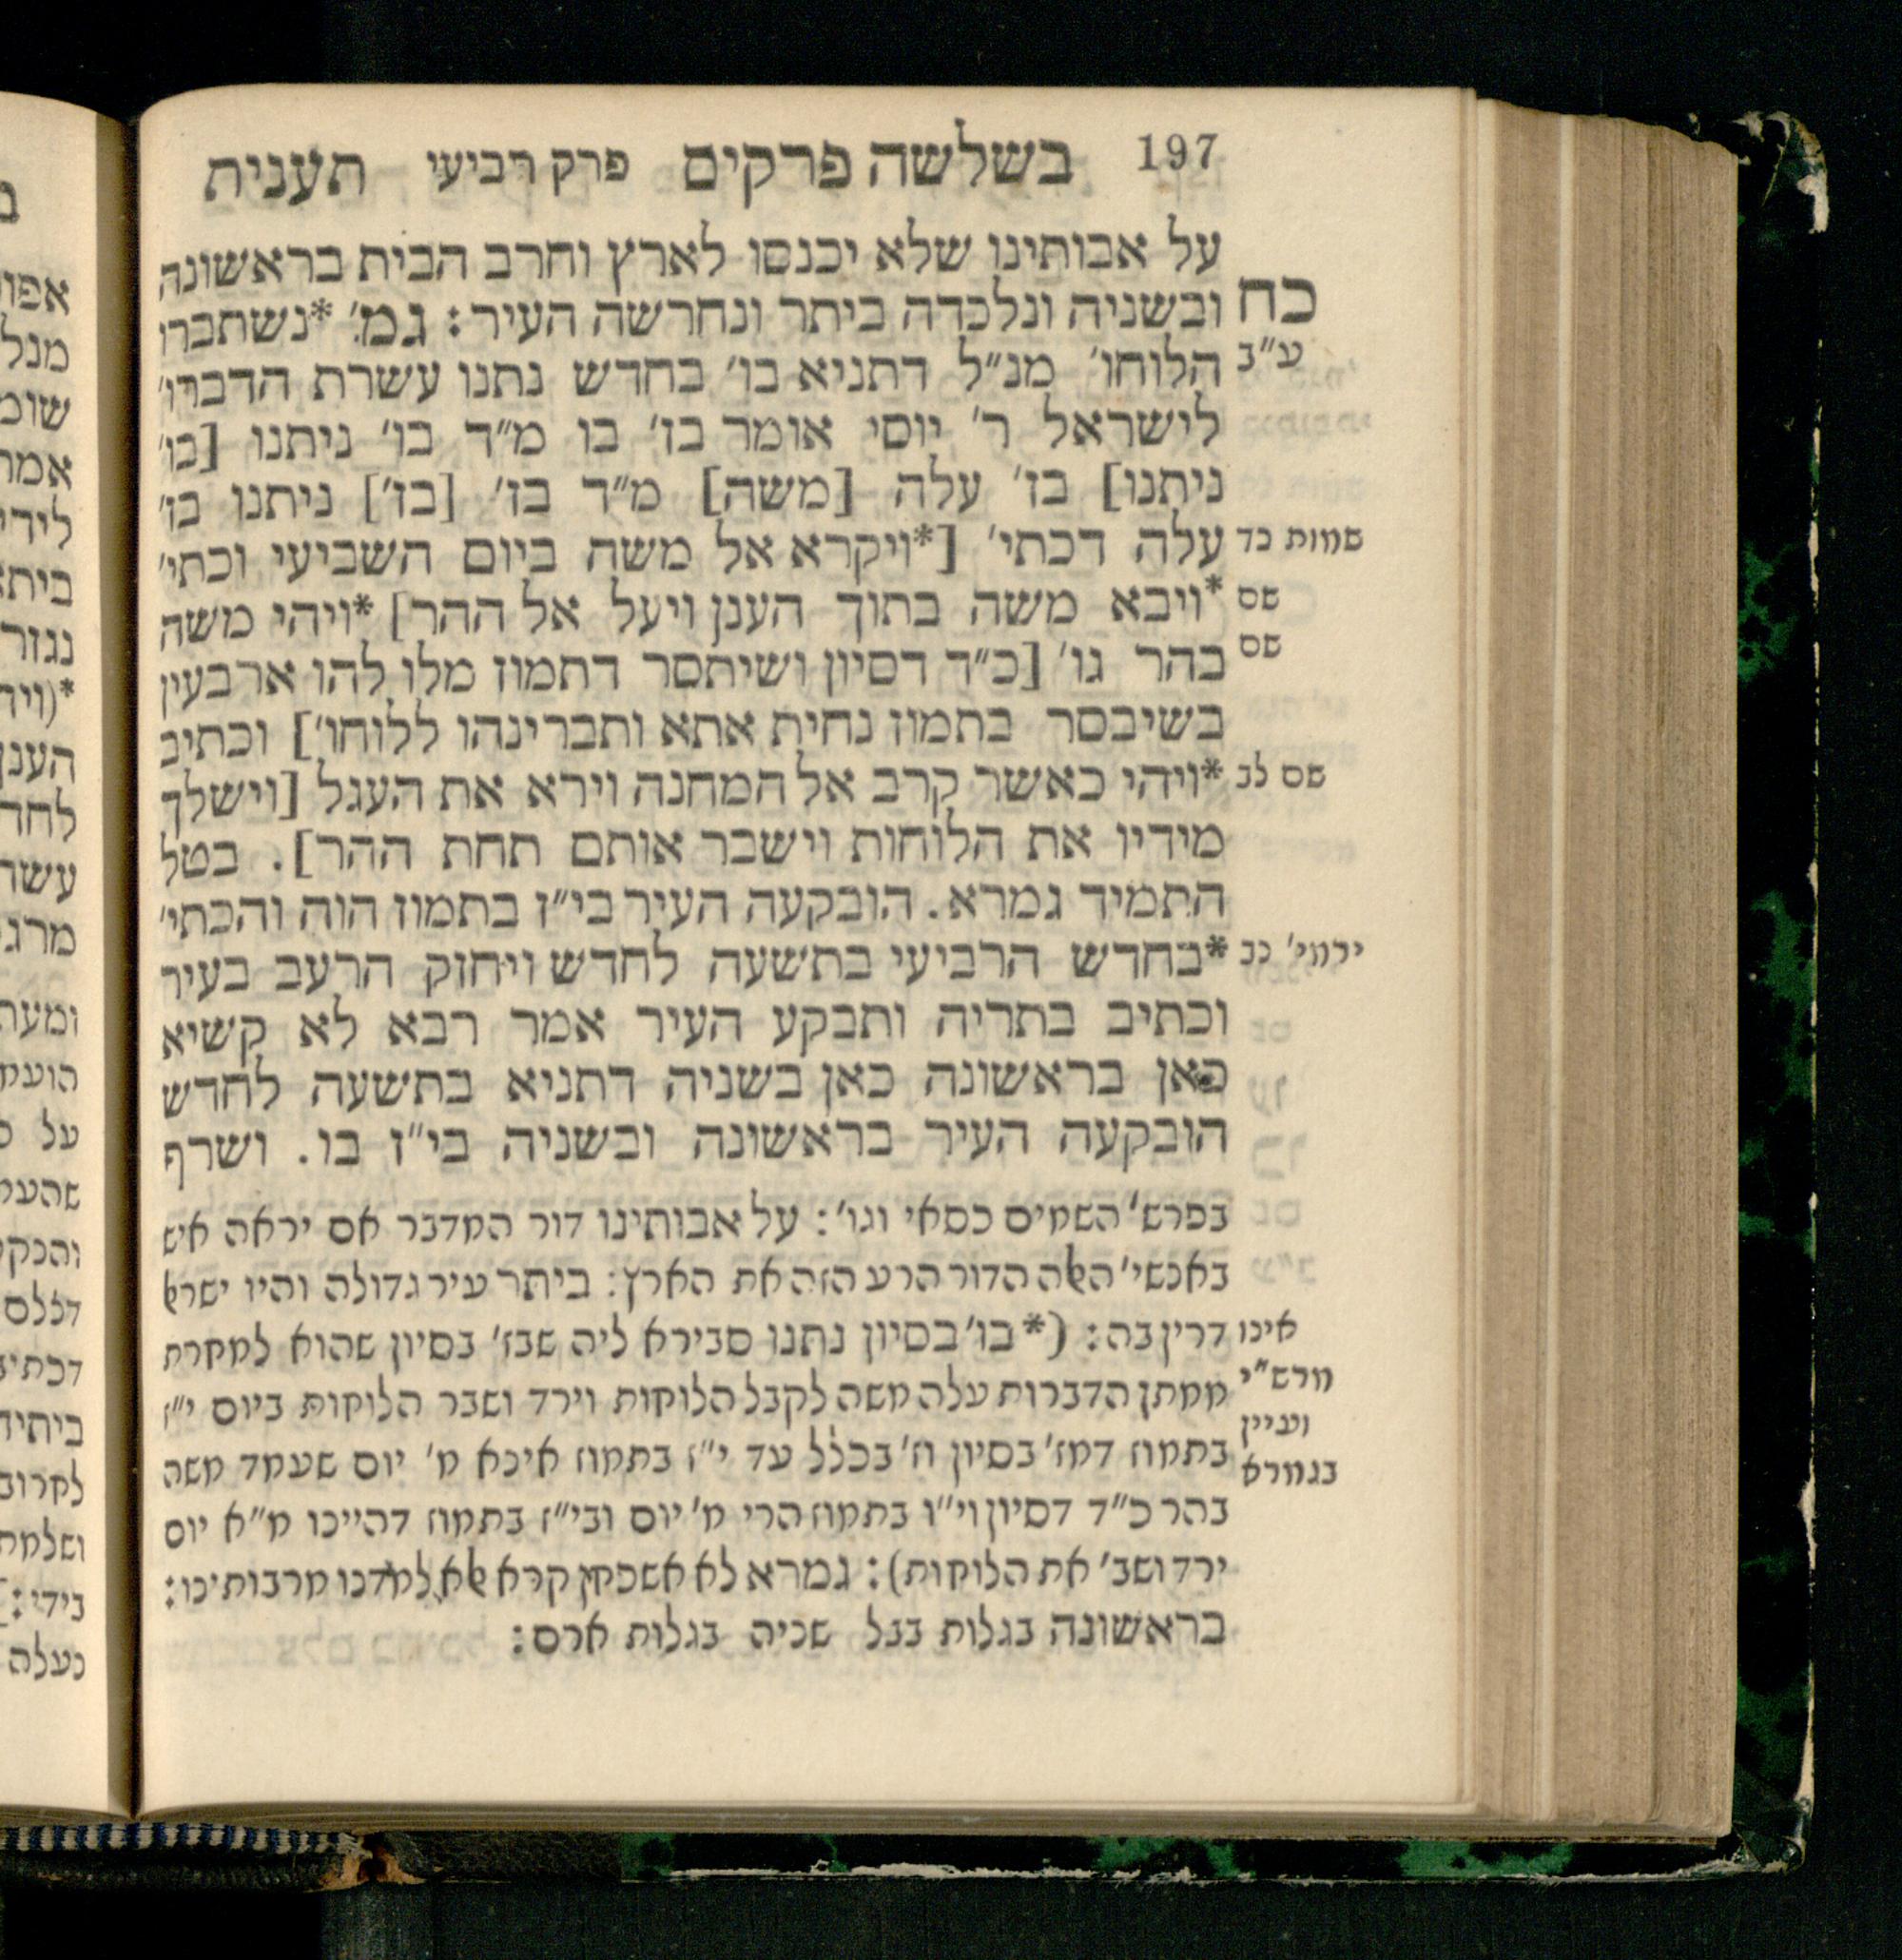 197 בשלשה פרקים פרק רביעי תענית
על אבותינו שלא יכנסו לארץ וחרב הבית בראשונה
כח ובשניה ונלכדה ביתר ונחרשה העיר: גמ׳ *נשתברו
ע״ב הלוחו׳ מנ״ל דתניא בו׳ בחדש נתנו עשרת הדברו׳
לישראל ר׳ יוסי אומר בז׳ בו מ״ד בו׳ ניתנו [בו׳
ניתנו] בז׳ עלה [משה] מ״ד בז׳ [בז׳] ניתנו בז׳
שמות כד עלה דכתי׳ [*ויקרא אל משה ביום השביעי וכתי׳
שם *ויבא משה בתוך הענן ויעל אל ההר] *ויהי משה
שם בהר גו׳ [כ״ד דסיון ושיתסר דתמוז מלו להו ארבעין
בשיבסר בתמוז נחית אתא ותברינהו ללוחו׳] וכתיב
שם לב *ויהי כאשר קרב אל המחנה וירא את העגל [וישלך
מידיו את הלוחות וישבר אותם תחת ההר]. בטל
התמיד גמרא. הובקעה העיר בי״ז בתמוז הוה והכתי׳
ירמי׳ נב *בחדש הרביעי בתשעה לחדש ויחזק הרעב בעיר
וכתיב בתריה ותבקע העיר אמר רבא לא קשיא
כאן בראשונה כאן בשניה דתניא בתשעה לחדש
הובקעה העיר בראשונה ובשניה בי״ז בו. ושרף
בפרש׳ השמים כסאי וגו׳: על אבותינו דור המדבר אם יראה איש
באנשי׳ האלה הדור הרע הזה את הארץ: ביתר עיר גדולה והיו ישראל
אינו דרין בה: (*בו׳ בסיון נתנו סבירא ליה שבז׳ בסיון שהוא למחרת
מרש״י ממתן הדברות עלה משה לקבל הלוחות וירד ושבר הלוחות ביום י״ז
ועיין
בתמוז דמז׳ בסיון וז׳ בכלל עד י״ז בתמוז איכא מ׳ יום שעמד משה
בגמרא
בהר כ״ד דסיון וי״ו בתמוז הרי מ׳ יום ובי״ז בתמוז דהיינו מ״א יום
ירד ושב׳ את הלוחות): גמרא לא אשכחן קרא אלא למדנו מרבותינו:
בראשונה בגלות בבל שניה בגלות ארם:
אפו
מנל
שומ
אמר
לידי
נגזר
*(ויר
הענן
לחד
עשר
מרג
ומעת
הועמ
על
שהעמ
והנקה
דכלם
דכתי
ביחיד
לחרוב
ושלמת
בידי:]
כעלה